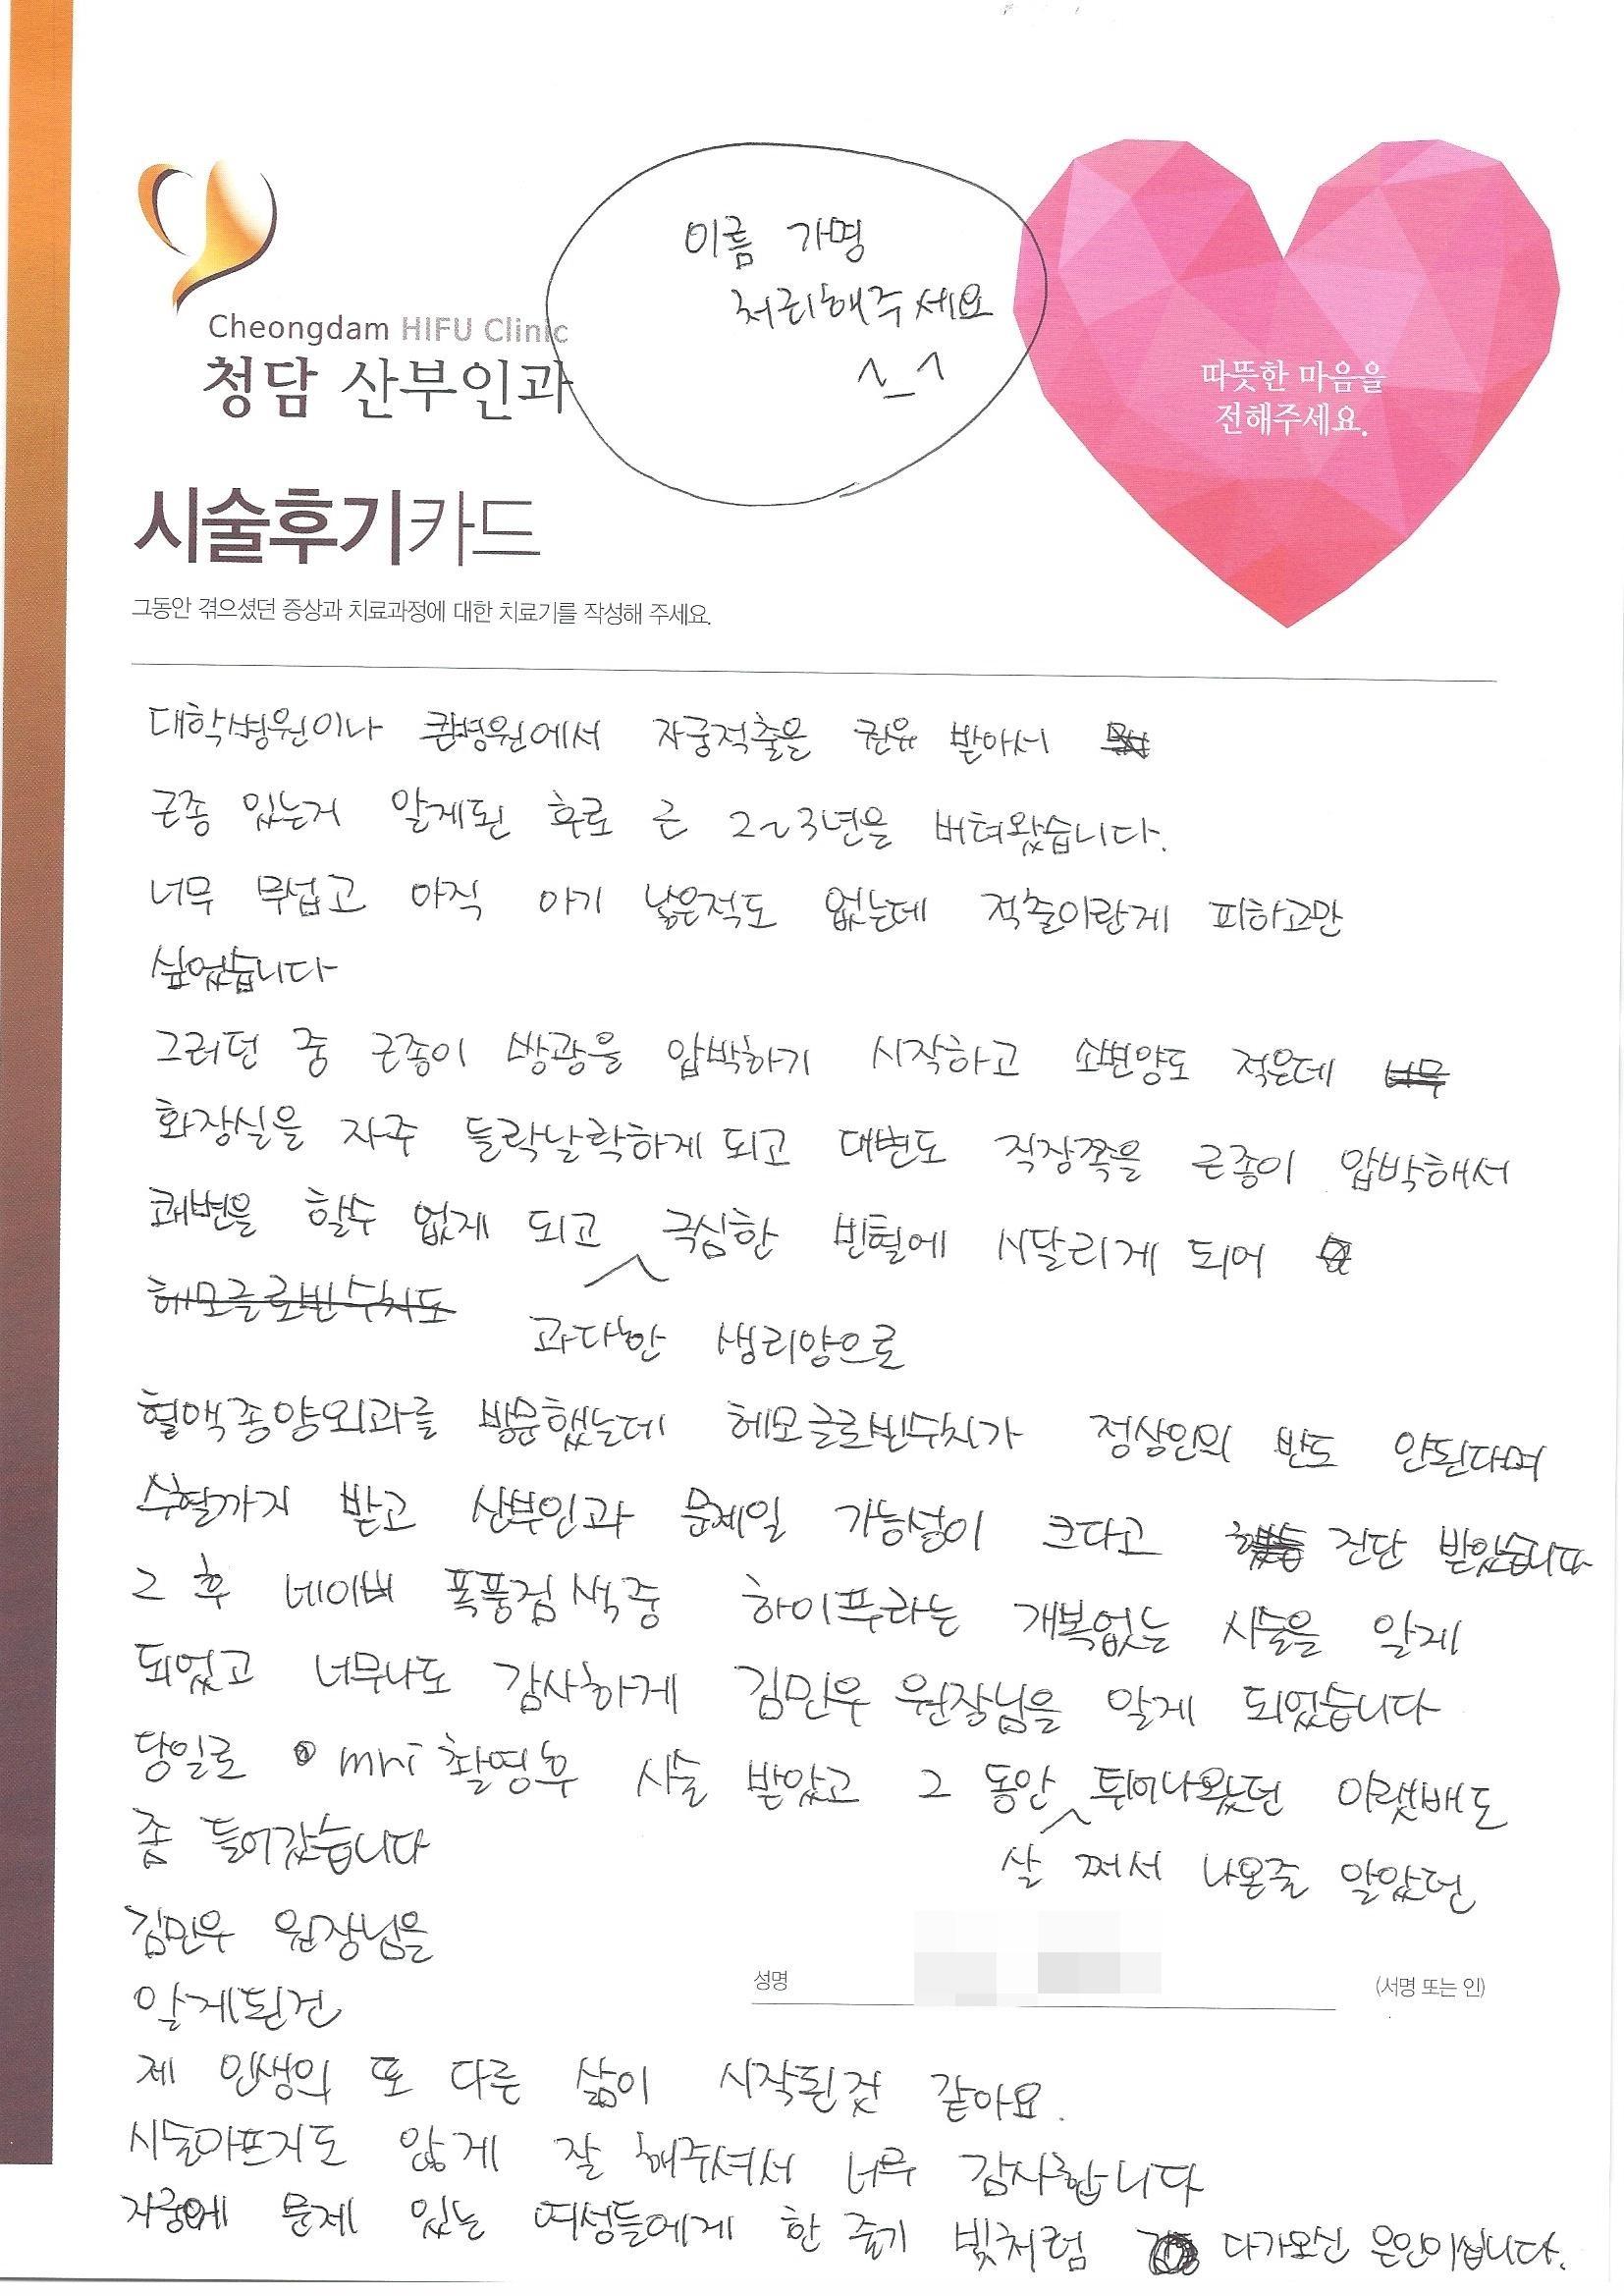 이름 가명
처리해주세요
^_^
Cheongdam HIFU Clinic
청담 산부인과
따뜻한 마음을
전해주세요.
시술후기카드
그동안 겪으셨던 증상과 치료과정에 대한 치료기를 작성해 주세요.
대학병원이나 큰병원에서 자궁적출을 권유 받아서
근종 있는거 알게된 후로 근 2~3년을 버텨왔습니다.
너무 무섭고 아직 아기 낳은적도 없는데 적출이란게 피하고만
싶었습니다
그러던 중 근종이 방광을 압박하기 시작하고 소변양도 적은데 너무
화장실을 자주 들락날락하게 되고 대변도 직장쪽을 근종이 압박해서
쾌변을 할수 없게 되고 극심한 빈혈에 시달리게 되어
헤모글로빈수치도
과다한 생리양으로
혈액종양외과를 방문했는데 헤모글로빈수치가 정상인의 반도 안된다며
수혈까지 받고 산부인과 문제일 가능성이 크다고 진단 받았습니다
그 후 네이버 폭풍검색중 하이푸라는 개복없는 시술을 알게
되었고 너무나도 감사하게 김민우 원장님을 알게 되었습니다
당일로 mri 촬영후 시술 받았고 그 동안 튀어나왔던 아랫배도
좀 들어갔습니다
살 쪄서 나온줄 알았던
김민우 원장님을
성명
(서명 또는 인)
알게된건
제 인생의 또 다른 삶이 시작된것 같아요.
시술아프지도 않게 잘 해주셔서 너무 감사합니다
자궁에 문제 있는 여성들에게 한 줄기 빛처럼 다가오신 은인이십니다.